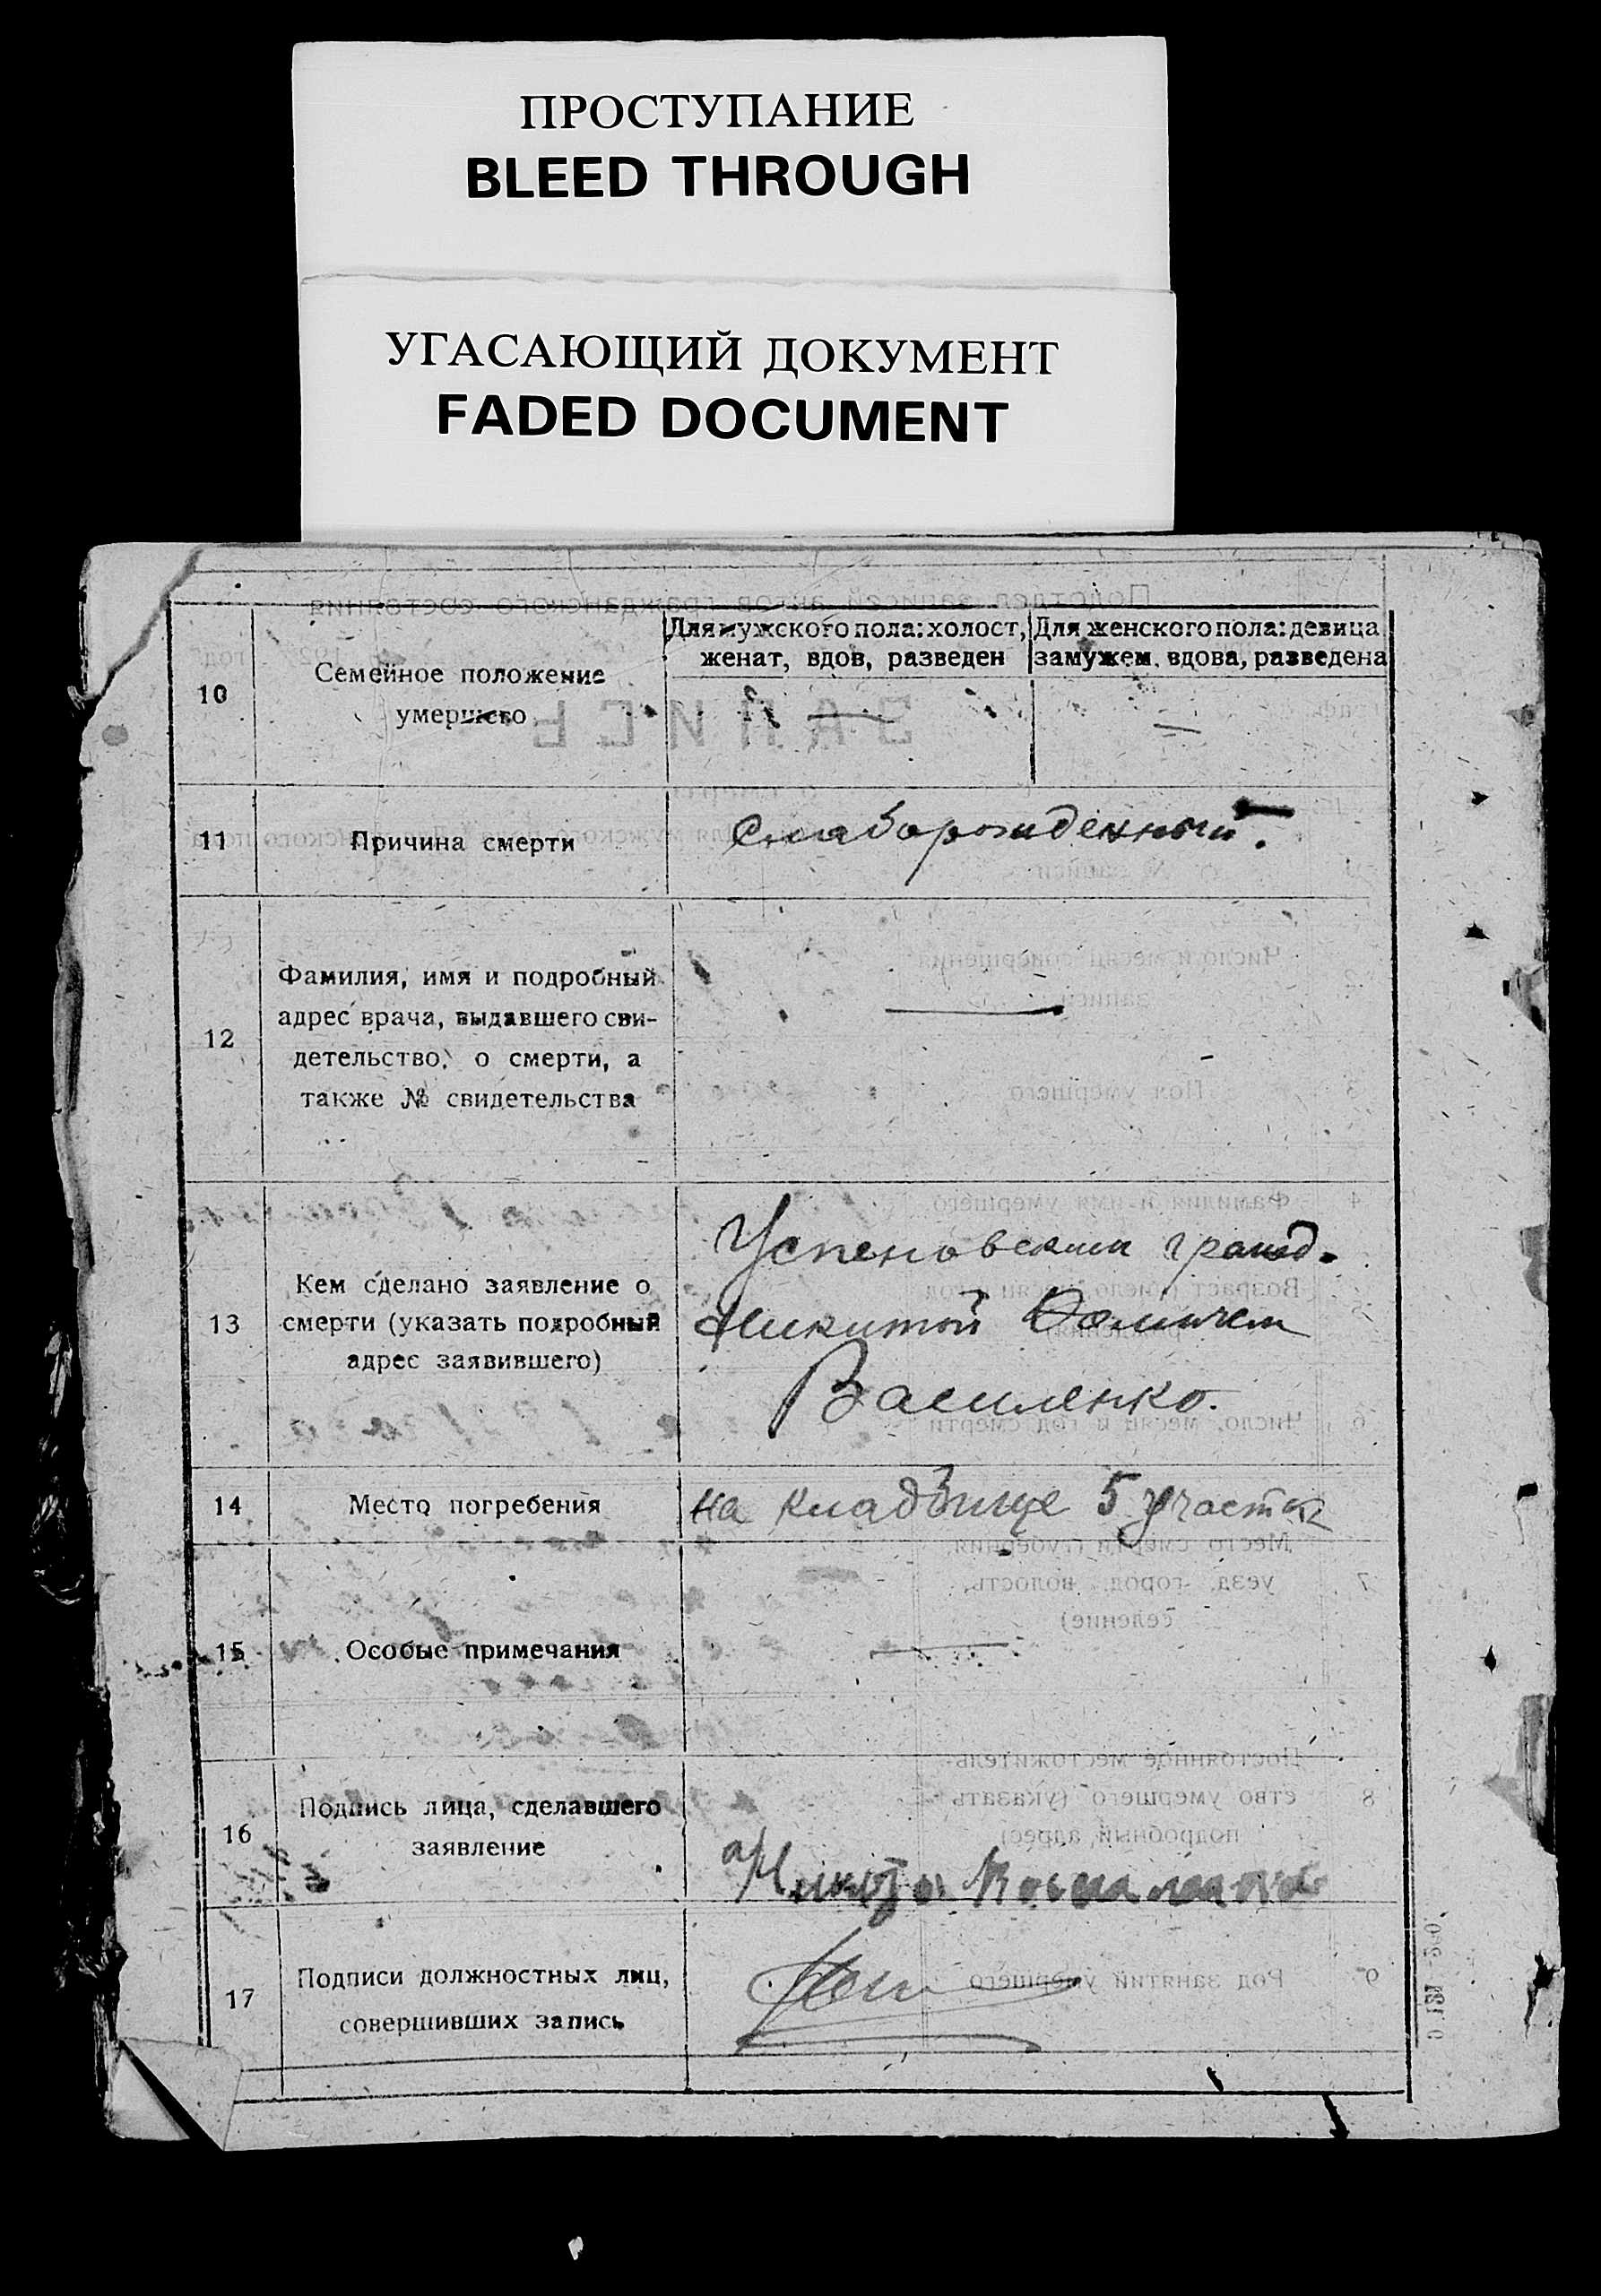 ПРОСТУПАНИЕ
BLEED THROUGH
УГАСАЮЩИЙ ДОКУМЕНТ
FADED DOCUMENT
10
Семейное положение
умершего
Для мужского пола: холост,
женат, вдов, разведен
Для женского пола: девица
замужем, вдова, разведена
—
—
11
Причина смерти
Слаборожденный.
12
Фамилия, имя и подробный
адрес врача, выдавшего сви-
детельство, о смерти, а
также № свидетельства
—
13
Кем сделано заявление о
смерти (указать подробный
адрес заявившего)
Успеновским гражд.
Никитой
Василенко.
14
Место погребения
на кладбище 5 участк
15
Особые примечания
—
16
Подпись лица, сделавшего
заявление
Никита
17
Подписи должностных лиц,
совершивших запись